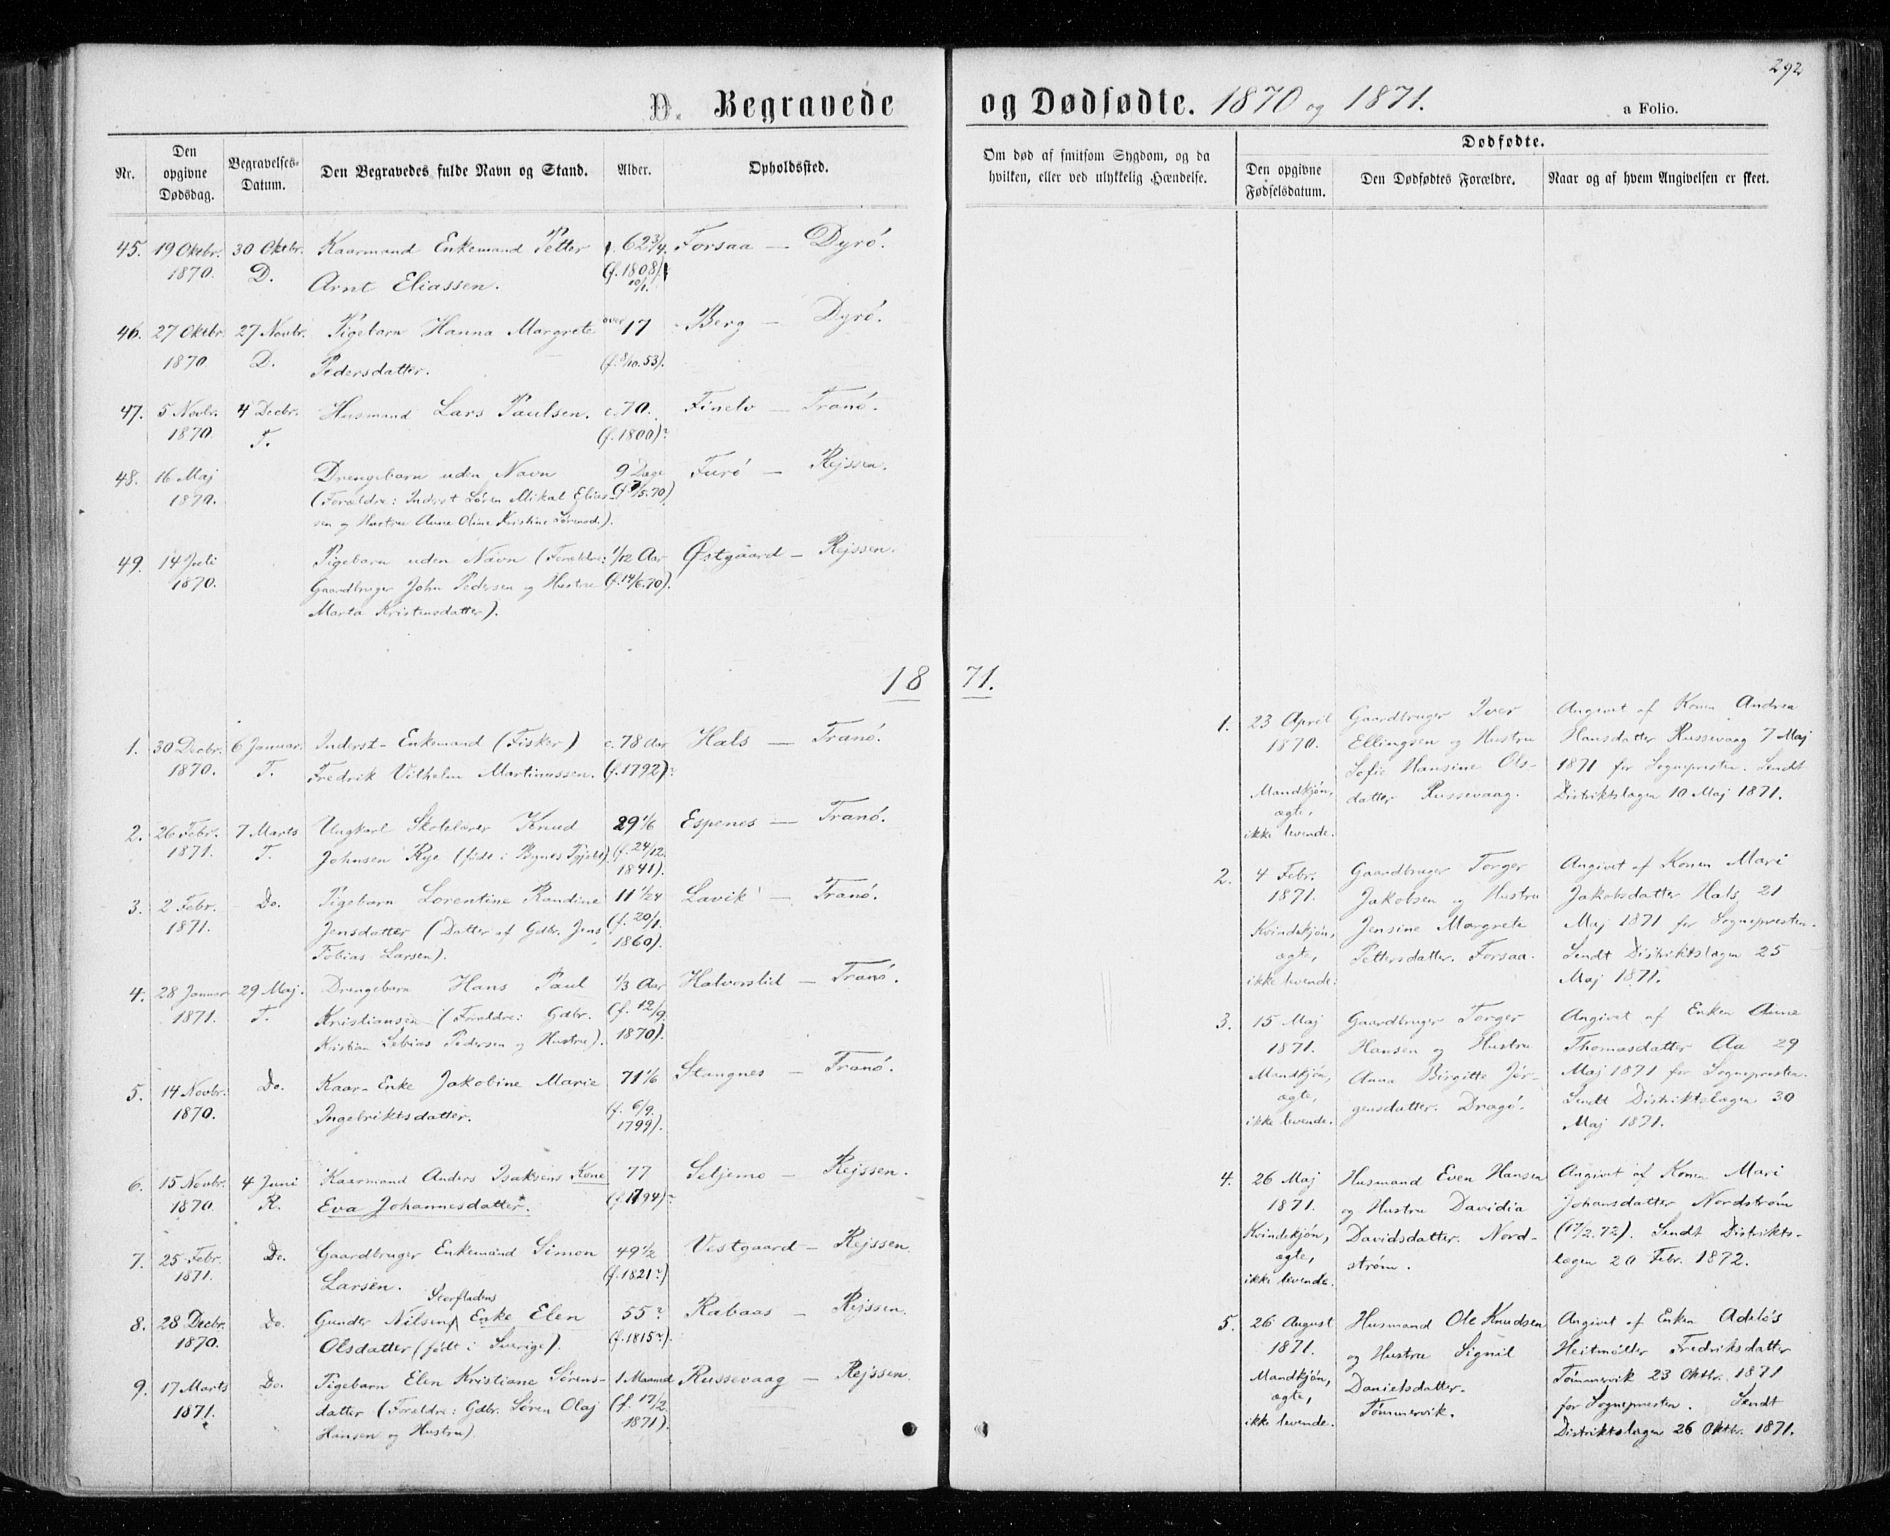 292
D. Begravede og Dødfødte. 1870 og 1871.
a Folio.
Nr.
Den opgivne Dødsdag.
Begravelses-Datum.
Den Begravedes fulde Navn og Stand.
Alder.
Opholdssted.
Om død af smitsom Sygdom, og da
hvilken, eller ved ulykkelig Hændelse.
Dødfødte.
Den opgivne Fødselsdatum.
Den Dødfødtes Forældre.
Naar og af hvem Angivelsen er skeet.
45. 19 Oktbr. 30 Oktbr. Kaarmand Enkemand Petter 62 3/4. Forsaa — Dyrö.
1870. D. Arnt Eliassen. (f. 1808 10/1.
46. 27 Oktbr 27 Novbr. Pigebarn Hanna Margrete over 17 Berg — Dyrö.
1870. D. Pedersdatter. (f. 8/10.53).
47. 5 Novbr. 4 Decbr. Husmand Lars Paulsen. c. 70. Finelv — Tranö.
1870. T. (f. 1800)?
48. 16 Maj Drengebarn uden Navn 9 Dage Furö — Rejssen.
1870. (Forældre: Inderst Sören Mikal Elias- (f. 7/5.70)
sen og Hustru Anne Oline Kristine Sörensd.).
49. 14 Juli Pigebarn uden Navn (Forældre: 1/12 Aar Østgaard — Rejssen.
1870. Gaardbruger John Pedersen og Hustru (f. 14/6.70).
Marta Kristensdatter).
1871.
1. 30 Decbr. 6 Januar. Inderst-Enkemand (Fisker) c. 78 Aar Hals — Tranö.
1870. T. Fredrik Vilhelm Martinussen. (f. 1792)?
2. 26 Febr. 7 Marts Ungkarl Skolelærer Knud 29 1/6 Espenes — Tranö.
1871. T. Johnsen Rye (födt i Bynes Pgjeld). (f. 24/12.
1841).
3. 2 Febr. Do. Pigebarn Lorentine Randine 11 1/24 Lavik — Tranö.
1871. Jensdatter (Datter af Gdbr. Jens (f. 20/1.
Tobias Larsen). 1860).
4. 28 Januar 29 Maj. Drengebarn Hans Paul 1/3 Aar Halvorslid — Tranö.
1871. T. Kristiansen (Forældre: Gdbr. (f. 12/9.
Kristian Sebias Pedersen og Hustru). 1870).
5. 14 Novbr. Do. Kaar-Enke Jakobine Marie 71 1/6 Stangnes — Tranö.
1870. Ingebriktsdatter. (f. 6/9.
1799).
6. 15 Novbr. 4 Juni Kaarmand Anders Isaksens Kone 77 Seljemo — Rejssen.
1870. R. Eva Johannesdatter. (f. 1794)?
7. 25 Febr. Do. Gaardbruger Enkemand Simon 49 1/2 Vestgaard — Rejssen.
1871. Larsen. (f. 1821?)
Storfladens
8. 28 Decbr. Do. Gunder Nilsen Enke Elen 55? Rabaas — Rejssen.
1870. Olsdatter (födt i Sverige). (f. 1815?)
9. 17 Marts Do. Pigebarn Elen Kristiane Sörens- 1 Maaned Russevaag — Rejssen.
1871. datter (Forældre: Gdbr. Sören Olaj (f. 17/2
Hansen og Hustru). 1871).
1. 23 April Gaardbruger Iver Angivet af Konen Andrea
1870. Ellingsen og Hustru Hansdatter Russevaag 7 Maj
Sofie Hansine Ols- 1871 for Sognepresten. Sendt
Mandkjön, datter Russevaag. Distriktslægen 10 Maj 1871.
ægte,
ikke levende.
2. 4 Febr. Gaardbruger Torger Angivet af Konen Mari
1871. Jakobsen og Hustru Jakobsdatter Hals 21
Kvindekjön, Jensine Margrete Maj 1871 for Sognepresten.
ægte, Pettersdatter. Forsaa. Sendt Distriktslægen 25
ikke levende. Maj 1871.
3. 15 Maj Gaardbruger Torger Angivet af Enken Anne
1871. Hansen og Hustru Thomasdatter Aa 29
Mandkjön, Anna Birgitte Jör- Maj 1871 for Sognepresten.
ægte, gensdatter. Dragö. Sendt Distriktslægen 30
ikke levende. Maj 1871.
4. 26 Maj Husmand Even Hansen Angivet af Konen Mari
1871. og Hustru Davidia Johansdatter Nordström
Kvindekjön, Davidsdatter. Nord- (17/2.72). Sendt Distrikts-
ægte, ström. lægen 20 Febr. 1872.
ikke levende.
5. 26 August Husmand Ole Knudsen Angivet af Enken Adelös
1871. og Hustru Signil Heitmöller Fredriksdatter
Mandkjön, Danielsdatter. Tömmervik 23 Oktbr. 1871
ægte, Tömmervik. for Sognepresten. Sendt
ikke levende. Distriktslægen 26 Oktbr. 1871.